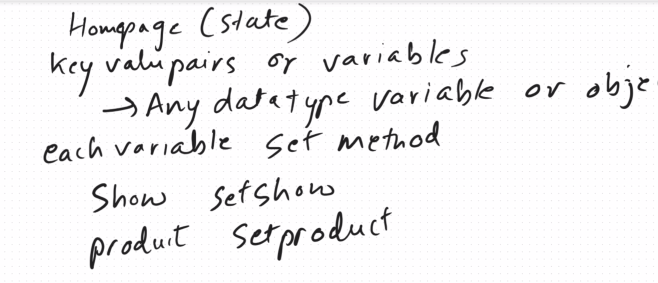 Homepage (state)
key valu pairs or variables
→ Any datatype variable or obje
each variable set method
Show setShow
product setproduct